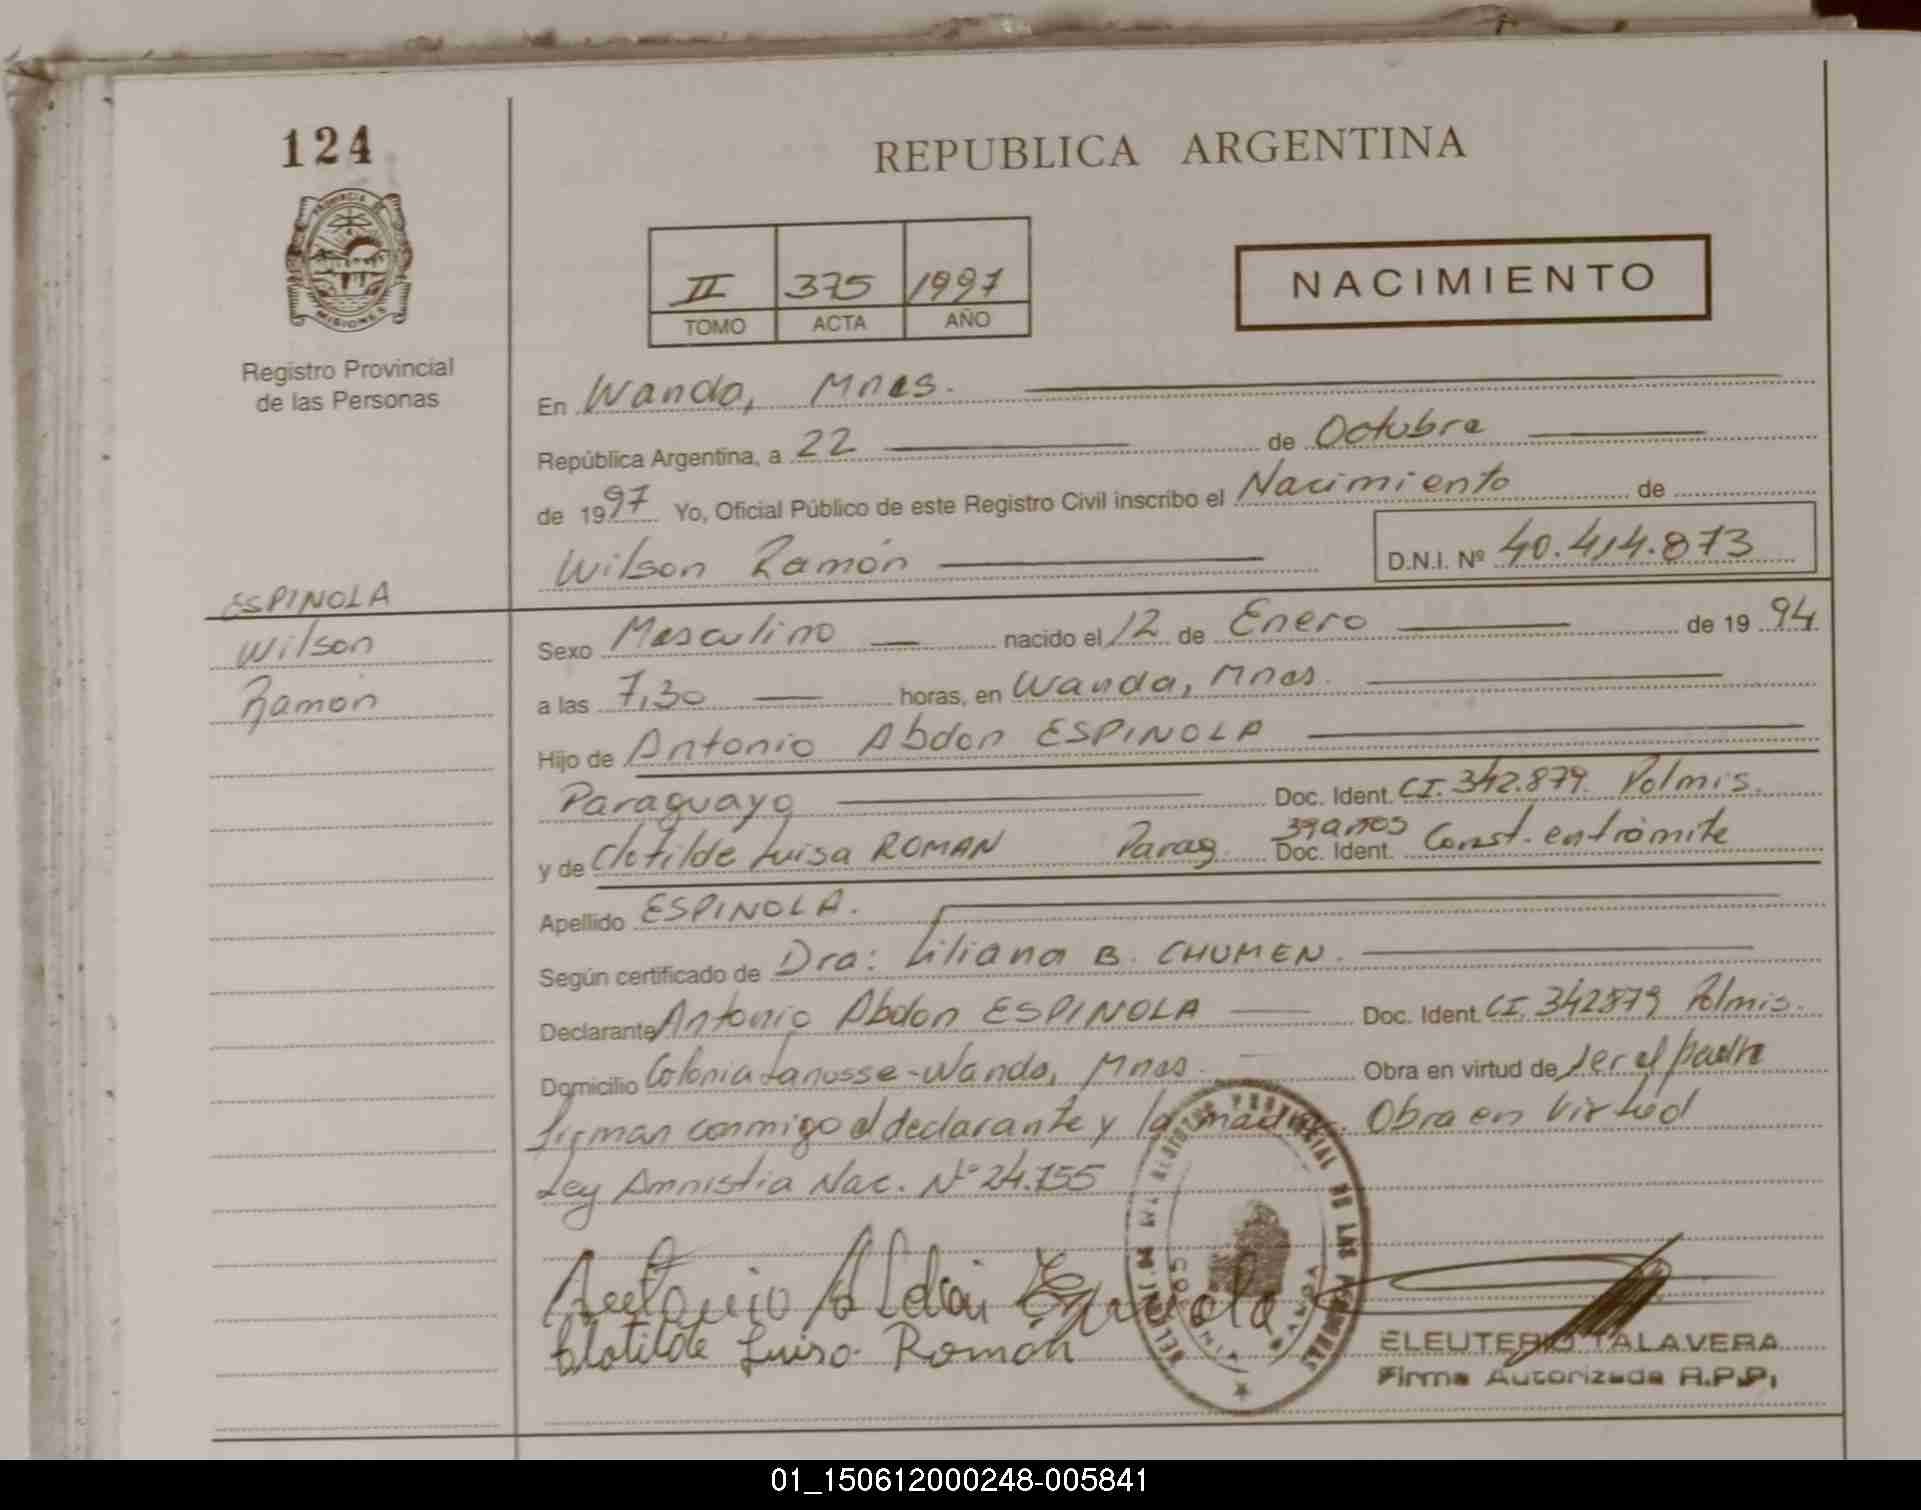 124
REPUBLICA ARGENTINA
PROVINCIA DE
MISIONES
Registro Provincial
de las Personas
II 375 1997
TOMO ACTA AÑO
NACIMIENTO
En Wanda, Mnes.
República Argentina, a 22 de Octubre
de 1997 Yo, Oficial Público de este Registro Civil inscribo el Nacimiento de
Wilson Ramón D.N.I. Nº 40.414.873
ESPINOLA
Wilson
Ramón
Sexo Masculino nacido el 12 de Enero de 1994
a las 7,30 horas, en Wanda, Mnes.
Hijo de Antonio Abdon ESPINOLA
Paraguayo Doc. Ident. CI. 342.879. Polmis.
39 años
y de Clotilde Luisa ROMAN Parag. Doc. Ident. Const. en trámite
Apellido ESPINOLA.
Según certificado de Dra: Liliana B. CHUMEN.
Declarante Antonio Abdon ESPINOLA Doc. Ident. CI. 342879 Polmis.
Domicilio Colonia Lanusse-Wanda, Mnes. Obra en virtud de ser el padre
firman conmigo el declarante y la madre. Obra en virtud
Ley Amnistia Nac. Nº 24.755
Antonio Abdon Espinola
Clotilde Luisa Román
ELEUTERIO TALAVERA
Firma Autorizada R.P.P.
01_150612000248-005841